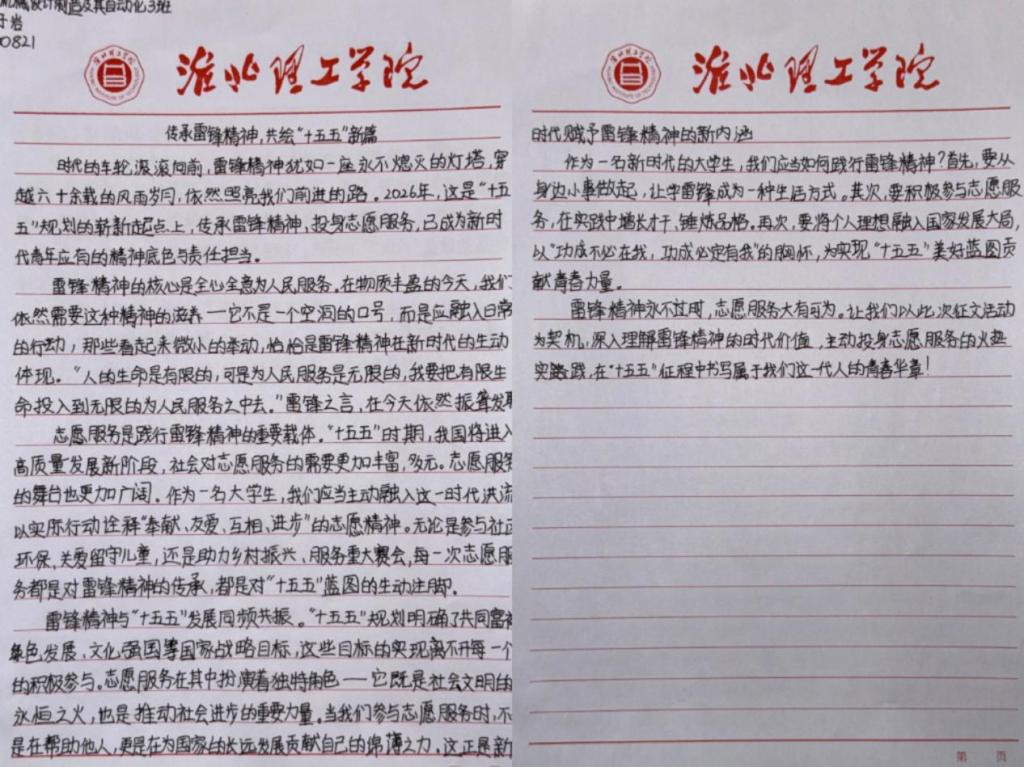 机械设计制造及其自动化3班
于岩
0821
淮北理工学院
传承雷锋精神,共绘“十五五”新篇
时代的车轮滚滚向前,雷锋精神犹如一座永不熄灭的灯塔,穿
越六十余载的风雨岁月,依然照亮我们前进的路。2026年,这是“十五
五”规划的崭新起点上,传承雷锋精神、投身志愿服务,已成为新时
代青年应有的精神底色与责任担当。
雷锋精神的核心是全心全意为人民服务。在物质丰盈的今天,我们
依然需要这种精神的滋养—它不是一个空洞的口号,而是应融入日常
的行动;那些看起来微小的举动,恰恰是雷锋精神在新时代的生动
体现。“人的生命是有限的,可是为人民服务是无限的,我要把有限生
命投入到无限的为人民服务之中去。”雷锋之言,在今天依然振聋发
志愿服务是践行雷锋精神的重要载体。“十五五”时期,我国将进入
高质量发展新阶段,社会对志愿服务的需要更加丰富,多元。志愿服务
的舞台也更加广阔。作为一名大学生,我们应当主动融入这一时代洪流
以实际行动诠释“奉献、友爱、互相、进步”的志愿精神。无论是参与社
环保、关爱留守儿童,还是助力乡村振兴、服务重大赛会,每一次志愿服
务都是对雷锋精神的传承,都是对“十五五”蓝图的生动注脚。
雷锋精神与“十五五”发展同频共振。“十五五”规划明确了共同富裕
绿色发展、文化强国等国家战略目标,这些目标的实现离不开每一个
的积极参与。志愿服务在其中扮演着独特角色——它既是社会文明的
永恒之火,也是推动社会进步的重要力量。当我们参与志愿服务时,不
是在帮助他人,更是在为国家的长远发展贡献自己的绵薄之力,这正是新
淮北理工学院
时代赋予雷锋精神的新内涵
作为一名新时代的大学生,我们应当如何践行雷锋精神?首先,要从
身边小事做起,让学雷锋成为一种生活方式。其次,要积极参与志愿服
务,在实践中增长才干、锤炼品格。再次,要将个人理想融入国家发展大局,
以“功成不必在我,功成必定有我”的胸怀,为实现“十五五”美好蓝图贡
献青春力量。
雷锋精神永不过时,志愿服务大有可为。让我们以此次征文活动
为契机,深入理解雷锋精神的时代价值,主动投身志愿服务的火热
实践,在“十五五”征程中书写属于我们这一代人的青春华章!
第 页